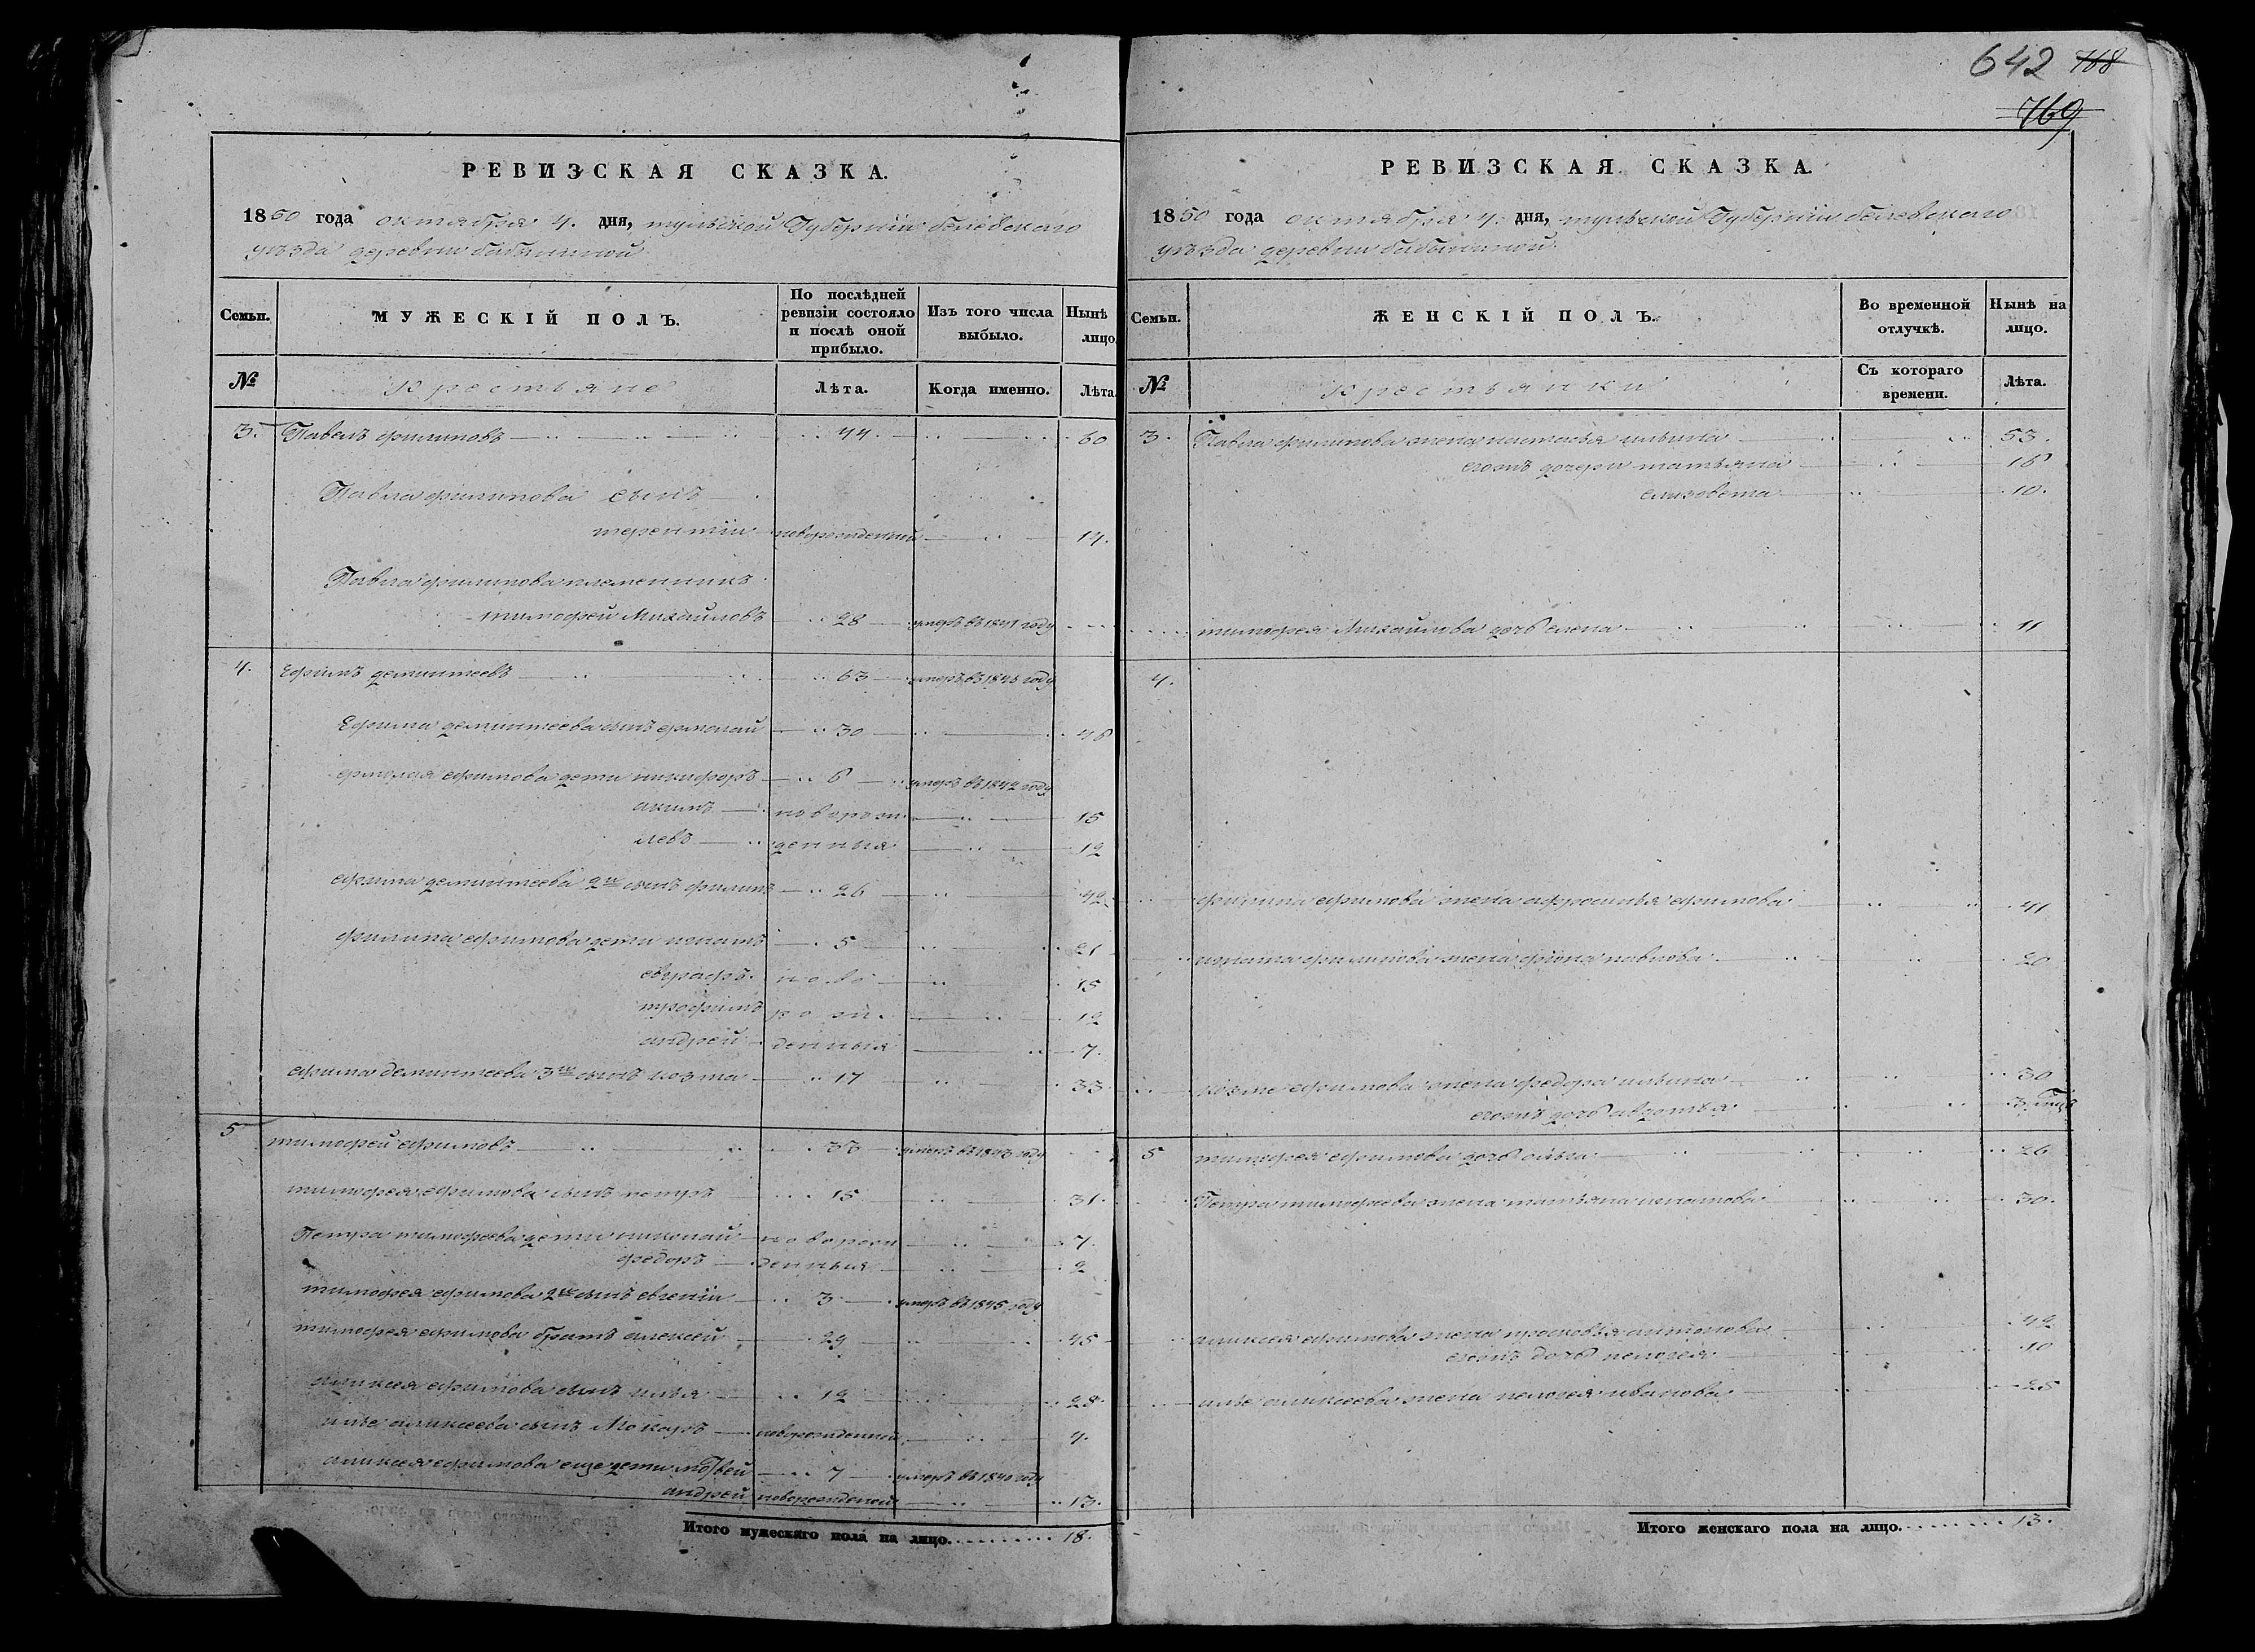 642 768
769
РЕВИЗСКАЯ СКАЗКА.
1850 года октября 4. дня, тульской Губерніи белевскаго
уѣзда деревни бабыниной
Семьи.
МУЖЕСКІЙ ПОЛЪ.
По послѣдней ревизіи состояло и послѣ оной прибыло.
Изъ того числа выбыло.
Нынѣ лицо.
№
Крестьяне
Лѣта.
Когда именно.
Лѣта.
3. Павелъ филиповъ 44. 60
Павла филипова сынъ
терентіи новорожденный 14.
Павла филипова племенникъ
тимофей Михайловъ 28 умеръ въ 1841 году
4. Ефимъ деминтеевъ 63 умеръ въ 1846 году
Ефима деминтеева сынъ ермолай 30 46
ермолая ефимова дети никифоръ 6 умеръ въ 1842 году
акимъ новорож 15
левъ денныя 12
ефима деминтеева 2й сынъ филипъ 26 42
филипа ефимова дети игнатъ 5 21
евграфъ. ново 15
трофимъ рож. 12
андрей денныя 7.
ефима деминтеева 3й сынъ козма 17 33
5 тимофей ефимовъ 33 умеръ въ 1843 году
тимофея ефимова сынъ петръ 15 31.
Петра тимофеева дети николай новорож 7.
федоръ денныя 2
тимофея ефимова 2й сынъ евгеніи 3 умеръ въ 1845 году
тимофея ефимова братъ алексей 29 45
аликсея ефимова сынъ илья 12 28.
илье аликсеева сынъ Мокаръ новорожденной 4.
аликсея ефимова еще дети матвей 7 умеръ въ 1840 году
андрей новорожденой 13.
Итого мужескаго пола на лицо. 18.
РЕВИЗСКАЯ СКАЗКА.
1850 года октября 4. дня, тульской Губерніи белевскаго
уѣзда деревни бабыниной.
Семьи.
ЖЕНСКІЙ ПОЛЪ.
Во временной отлучкѣ.
Нынѣ на лицо.
№
Крестьянки
Съ котораго времени.
Лѣта.
3. Павла филипова жена настасья ильина 53.
егожъ дочери татьяна 16
елизовета 10.
тимофея Михайлова дочь елена 11
4.
филипа ефимова жена афросинья ефимова 41
игната филипова жена фіона павлова 20
козме ефимова жена федора ильина 30
егожъ дочь авдотья
5 тимофея ефимова дочь ольга 26
Петра тимофеева жена татьяна игнатова 30.
аликсея ефимова жена прасковья антонова 42
егожъ дочь пелогея 10
илье аликсеева жена пелогея иванова 25
Итого женскаго пола на лицо. 13.